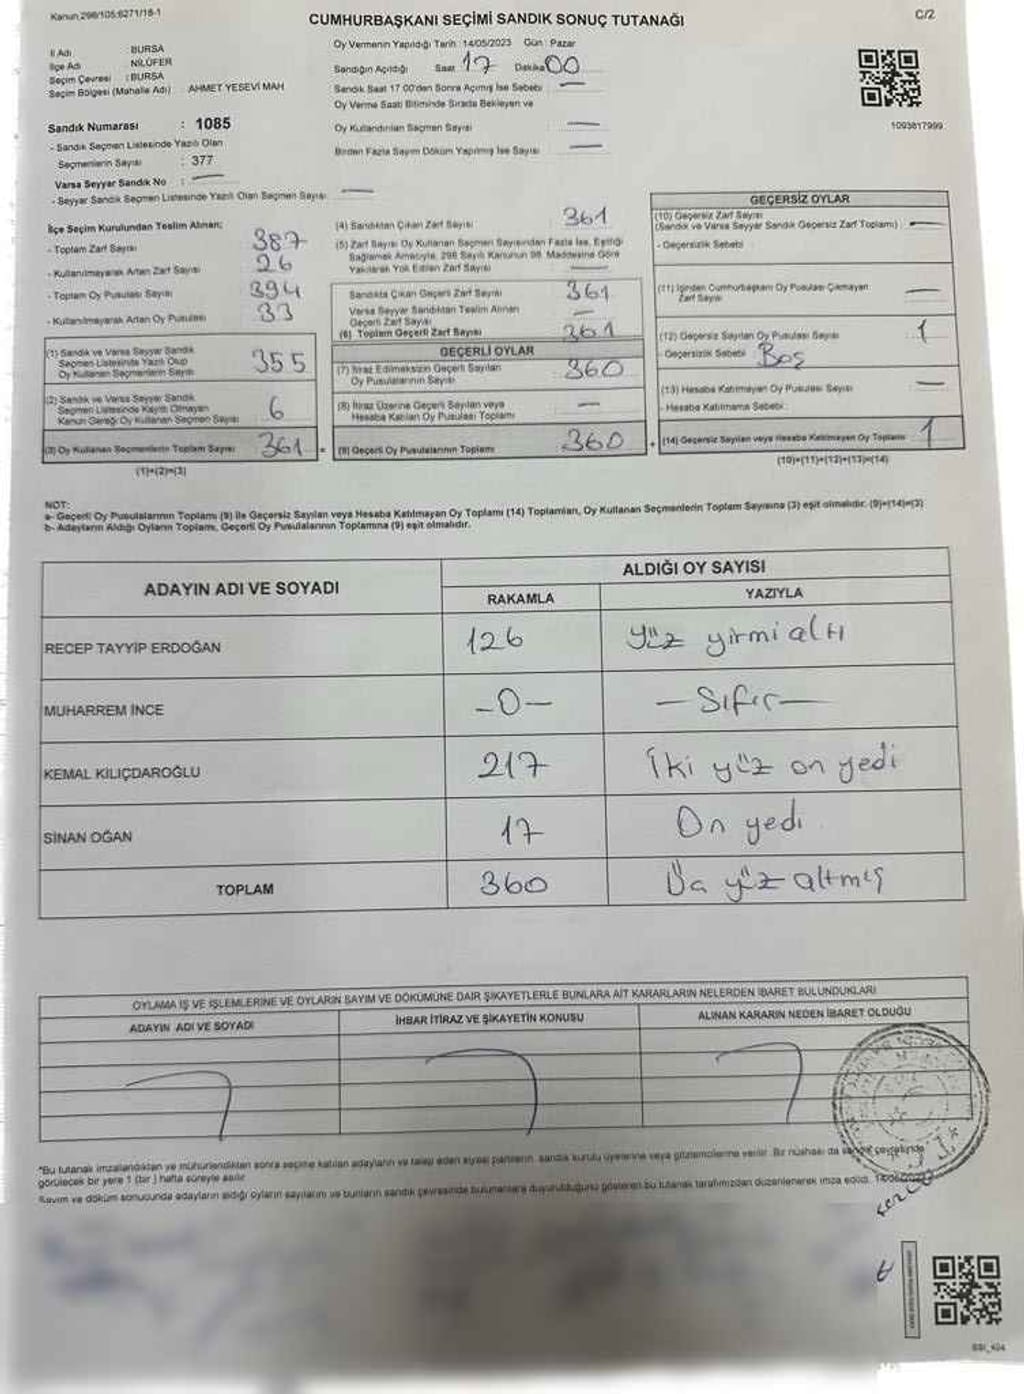 Kanun:298/105:6271/18-1
CUMHURBAŞKANI SEÇİMİ SANDIK SONUÇ TUTANAĞI
C/2
İl Adı BURSA
İlçe Adı NİLÜFER
Seçim Çevresi : BURSA
Seçim Bölgesi (Mahalle Adı) AHMET YESEVİ MAH
Sandık Numarası : 1085
- Sandık Seçmen Listesinde Yazılı Olan
Seçmenlerin Sayısı : 377
Varsa Seyyar Sandık No : —
- Seyyar Sandık Seçmen Listesinde Yazılı Olan Seçmen Sayısı —
Oy Vermenin Yapıldığı Tarih 14/05/2023 Gün : Pazar
Sandığın Açıldığı Saat 17 Dakika 00
Sandık Saat 17.00'den Sonra Açılmış İse Sebebi —
Oy Verme Saati Bitiminde Sırada Bekleyen ve
Oy Kullandırılan Seçmen Sayısı —
Birden Fazla Sayım Döküm Yapılmış İse Sayısı —
1093817999
İlçe Seçim Kurulundan Teslim Alınan;
- Toplam Zarf Sayısı 387
- Kullanılmayarak Artan Zarf Sayısı 26
- Toplam Oy Pusulası Sayısı 394
- Kullanılmayarak Artan Oy Pusulası 33
(1) Sandık ve Varsa Seyyar Sandık
Seçmen Listesinde Yazılı Olup
Oy Kullanan Seçmenlerin Sayısı 355
(2) Sandık ve Varsa Seyyar Sandık
Seçmen Listesinde Kayıtlı Olmayan
Kanun Gereği Oy Kullanan Seçmen Sayısı 6
(3) Oy Kullanan Seçmenlerin Toplam Sayısı 361 =
(1)+(2)=(3)
(4) Sandıktan Çıkan Zarf Sayısı 361
(5) Zarf Sayısı Oy Kullanan Seçmen Sayısından Fazla İse, Eşitliği
Sağlamak Amacıyla, 298 Sayılı Kanunun 98. Maddesine Göre
Yakılarak Yok Edilen Zarf Sayısı —
Sandıkta Çıkan Geçerli Zarf Sayısı 361
Varsa Seyyar Sandıktan Teslim Alınan
Geçerli Zarf Sayısı —
(6) Toplam Geçerli Zarf Sayısı 361
GEÇERLİ OYLAR
(7) İtiraz Edilmeksizin Geçerli Sayılan
Oy Pusulalarının Sayısı 360
(8) İtiraz Üzerine Geçerli Sayılan veya
Hesaba Katılan Oy Pusulası Toplamı —
(9) Geçerli Oy Pusulalarının Toplamı 360 +
GEÇERSİZ OYLAR
(10) Geçersiz Zarf Sayısı
(Sandık ve Varsa Seyyar Sandık Geçersiz Zarf Toplamı) —
- Geçersizlik Sebebi
(11) İçinden Cumhurbaşkanı Oy Pusulası Çıkmayan
Zarf Sayısı —
(12) Geçersiz Sayılan Oy Pusulası Sayısı 1
- Geçersizlik Sebebi : Boş
(13) Hesaba Katılmayan Oy Pusulası Sayısı —
- Hesaba Katılmama Sebebi :
(14) Geçersiz Sayılan veya Hesaba Katılmayan Oy Toplamı 1
(10)+(11)+(12)+(13)=(14)
NOT:
a- Geçerli Oy Pusulalarının Toplamı (9) ile Geçersiz Sayılan veya Hesaba Katılmayan Oy Toplamı (14) Toplamları, Oy Kullanan Seçmenlerin Toplam Sayısına (3) eşit olmalıdır. (9)+(14)=(3)
b- Adayların Aldığı Oyların Toplamı, Geçerli Oy Pusulalarının Toplamına (9) eşit olmalıdır.
ADAYIN ADI VE SOYADI
ALDIĞI OY SAYISI
RAKAMLA YAZIYLA
RECEP TAYYİP ERDOĞAN 126 Yüz yirmi altı
MUHARREM İNCE -0- — Sıfır —
KEMAL KILIÇDAROĞLU 217 İki yüz on yedi
SİNAN OĞAN 17 On yedi
TOPLAM 360 Üç yüz altmış
OYLAMA İŞ VE İŞLEMLERİNE VE OYLARIN SAYIM VE DÖKÜMÜNE DAİR ŞİKAYETLERLE BUNLARA AİT KARARLARIN NELERDEN İBARET BULUNDUKLARI
ADAYIN ADI VE SOYADI
İHBAR İTİRAZ VE ŞİKAYETİN KONUSU
ALINAN KARARIN NEDEN İBARET OLDUĞU
*Bu tutanak imzalandıktan ve mühürlendikten sonra seçime katılan adayların ve talep eden siyasi partilerin, sandık kurulu üyelerine veya gözlemcilerine verilir. Bir nüshası da sandık çevresinde
görülecek bir yere 1 (bir) hafta süreyle asılır.
Sayım ve döküm sonucunda adayların aldığı oyların sayılarını ve bunların sandık çevresinde bulunanlara duyurulduğunu gösteren bu tutanak tarafımızdan düzenlenerek imza edildi.